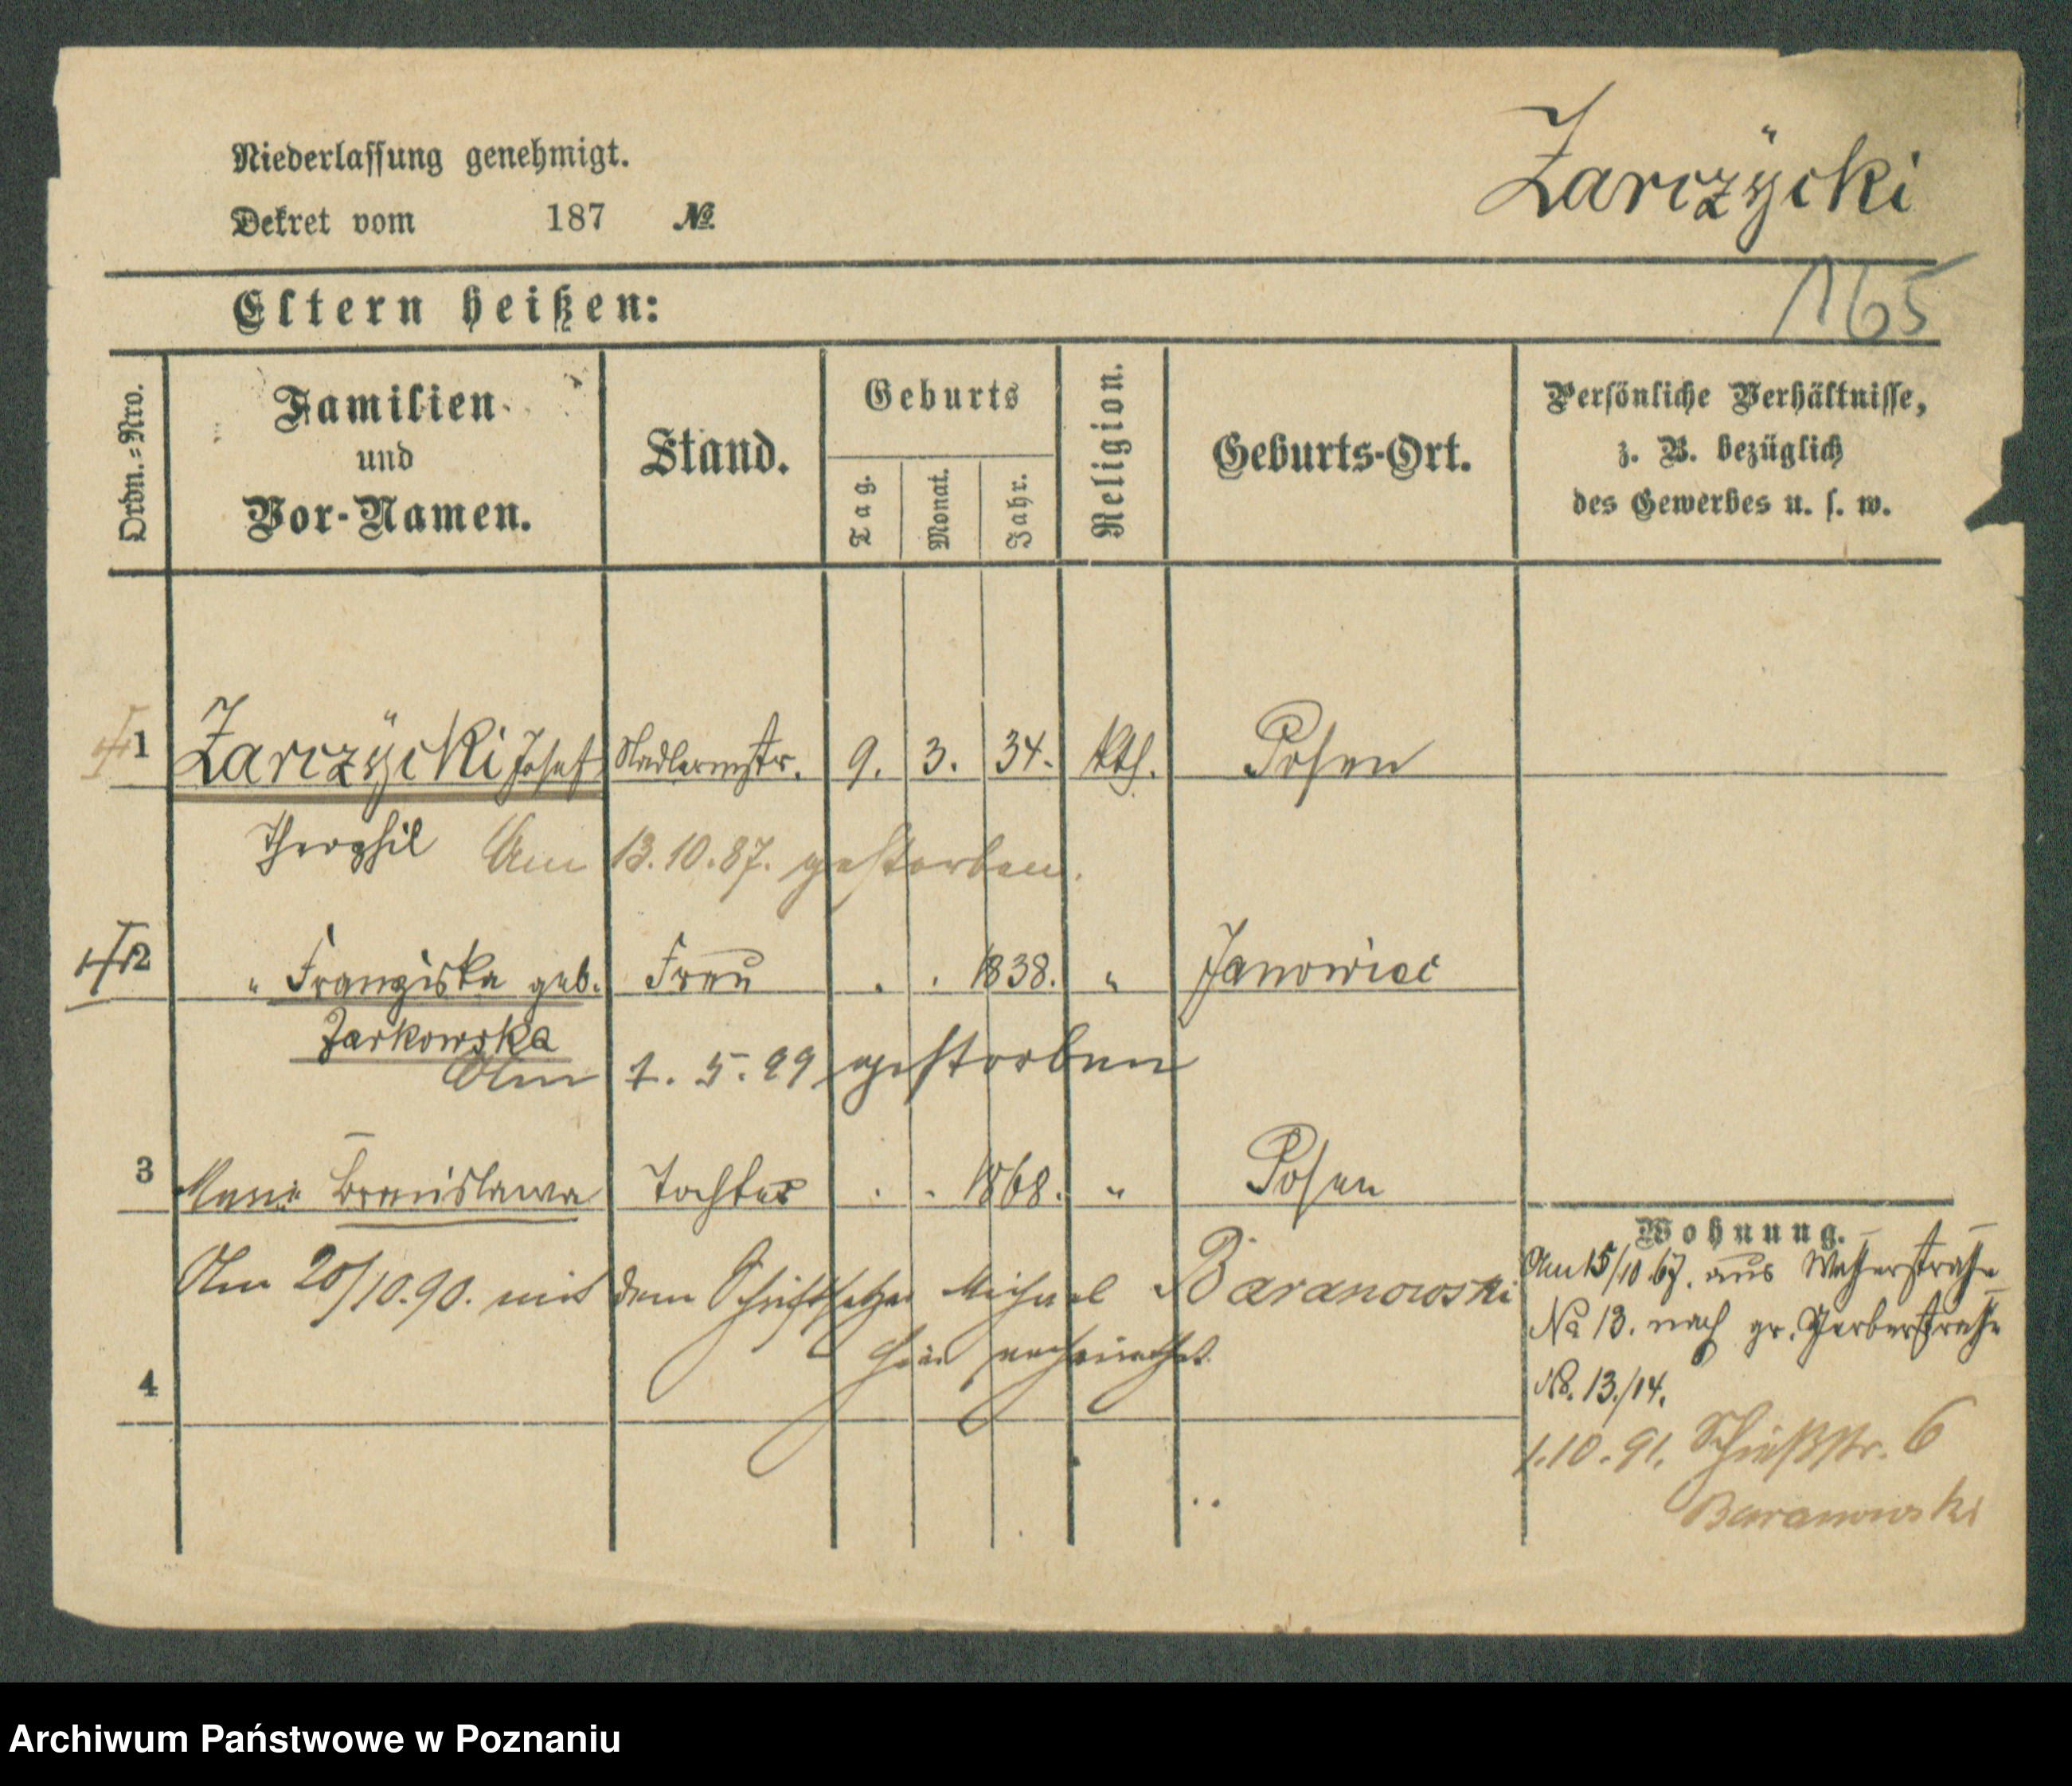 Niederlassung genehmigt.
Dekret vom 187 No.
Zarczÿcki
165
Eltern heißen:
Ordn.=Nro.
Familien
und
Vor-Namen.
Stand.
Geburts
Tag.
Monat.
Jahr.
Religion.
Geburts-Ort.
Persönliche Verhältnisse,
z. B. bezüglich
des Gewerbes u. s. w.
1 Zarczÿcki Josef Nadlermstr. 9. 3. 34. kth. Posen
Theophil Am 13.10.87. gestorben.
2 " Franziska geb. Frau . . 1838. " Janowiec
Żarkowska
Am 1. 5. 99 gestorben
3 Marie Bronislawa Tochter . . 1868. " Posen
Am 20/10.90. mit dem Schriftsetzer Michael Baranowski
hier verheirathet.
4
Wohnung.
Am 15/10.67. aus Wasserstraße
No 13. nach gr. Gerberstraße
No. 13./14.
1.10.91. Schießstr. 6
Baranowski
Archiwum Państwowe w Poznaniu